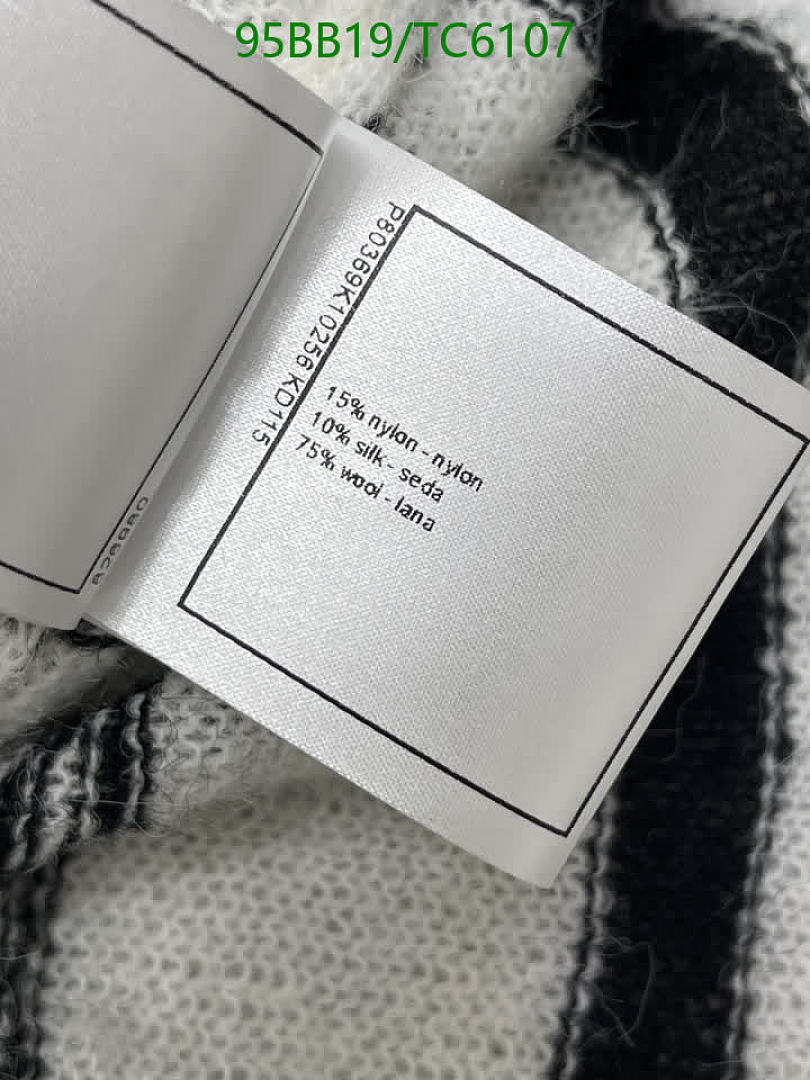 95BB19/TC6107
P80369K10256 KD115
15% nylon - nylon
10% silk - seda
75% wool - lana